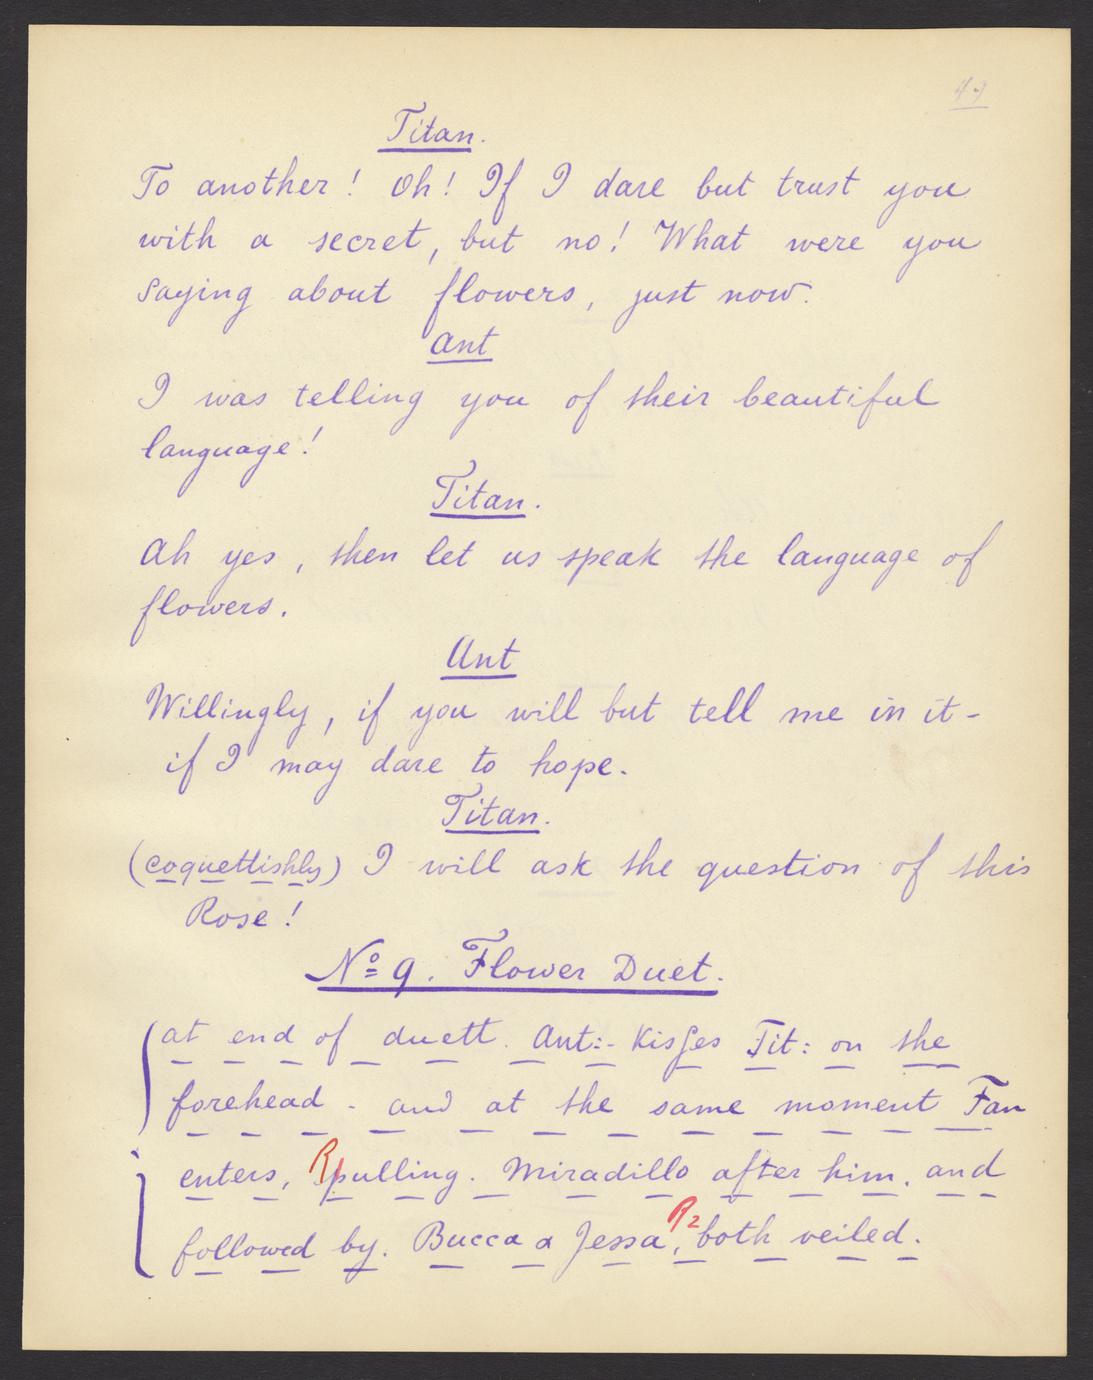 49
Titan.
To another! Oh! If I dare but trust you
with a secret, but no! What were you
saying about flowers, just now.
Ant
I was telling you of their beautiful
language!
Titan.
Ah yes, then let us speak the language of
flowers.
Ant
Willingly, if you will but tell me in it-
if I may dare to hope.
Titan.
(coquettishly) I will ask the question of this
Rose!
No 9. Flower Duet.
at end of duett. Ant:- Kisses Tit: on the
forehead - and at the same moment Fan
enters, R pulling. Miradillo after him. and
followed by. Bucca a Jessa, R2 both veiled.